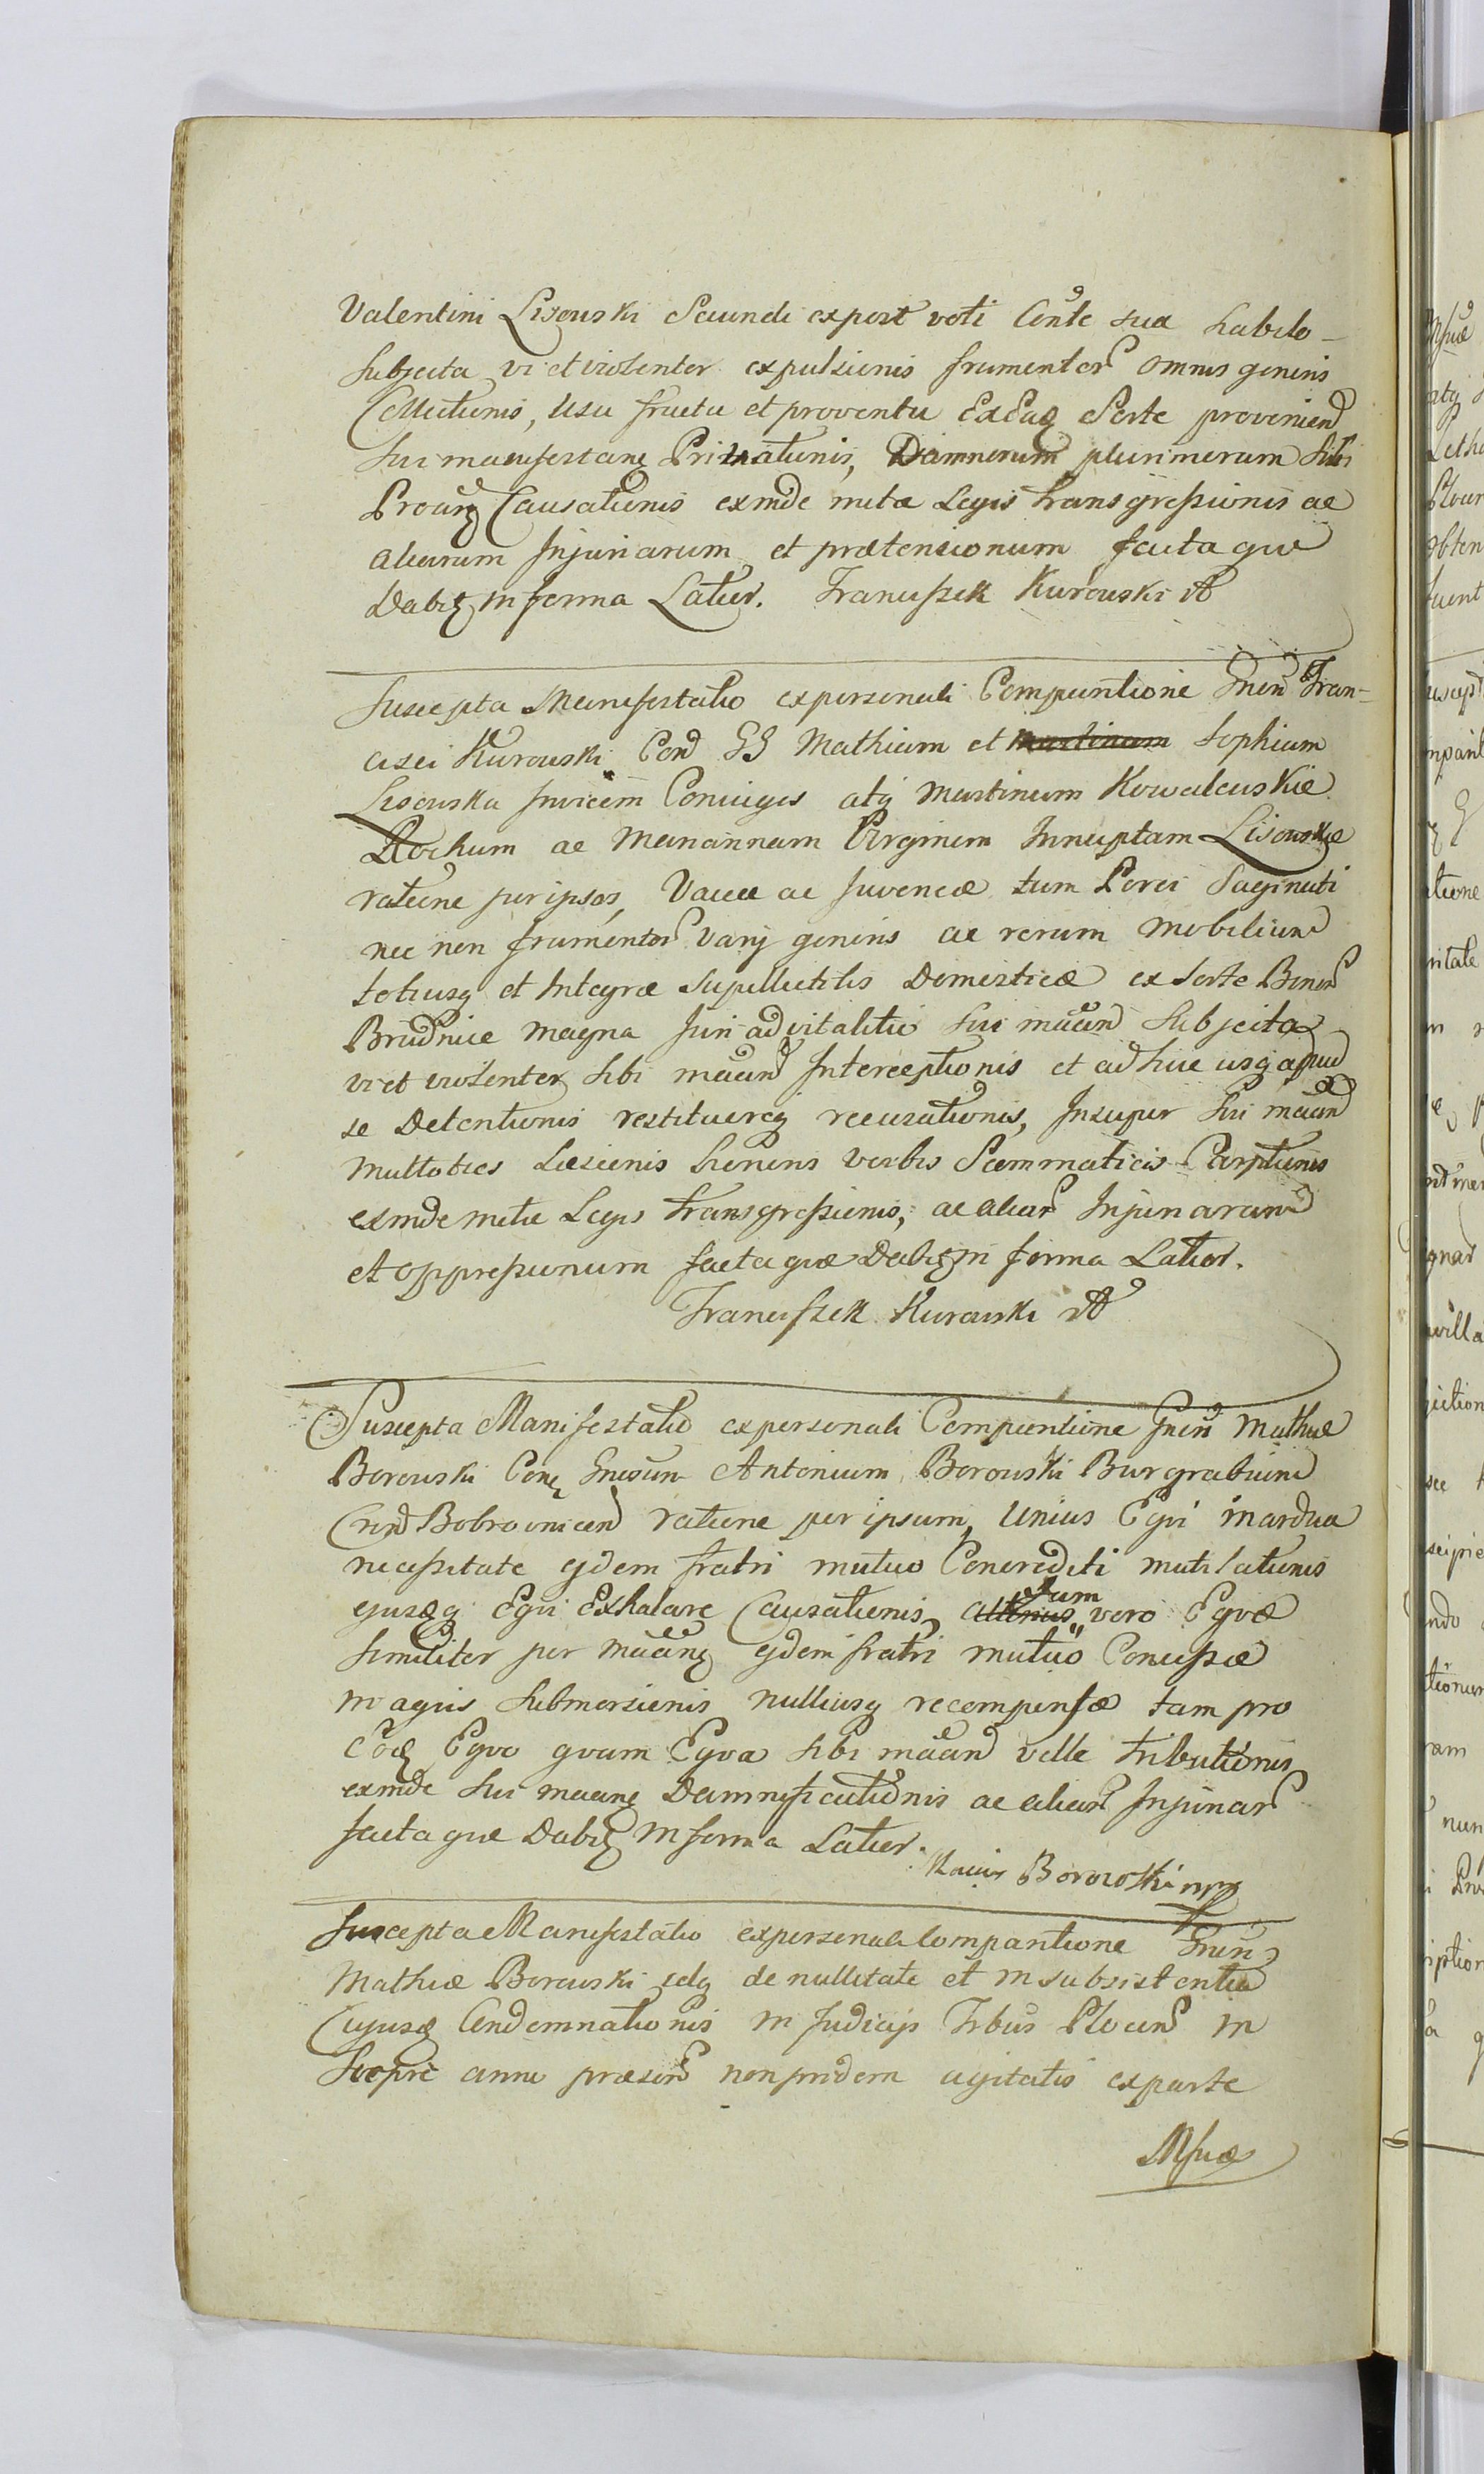 Valentini Lisowski Secundi expost voti Conte sua habito-
Subjecta vi et violenter expulsionis frumentor omnis generis
Collectionis, Usu fructu et proventu Exeaq Sorte proveniend
sui manifestane Privationis, Damnorum plurimorum Sibi
Causationis exinde metæ Legis transgreßionis ac
aliarum Injuriarum et prætensionum factaque
Dabit in forma Latior. Franciszek Kurowski
Suscepta Manifestatio ex personali Comparitione Gnen Fran-
cisci Kurowski Con GG Mathiam et Martinum Sophiam
Lisowska Invicem Coniuges atq Martinum Kowalewskie
Rochum ac Mariannam Virginem Innuptam Lisowskie
ratione per ipsos, Vaccæ ac Juvencæ tum Porci Saginati
nec non frumentor varij generis ac rerum mobilium
totiusq et Integræ Supellectilis Domesticæ ex Sorte Bonor
Brudnice magna Juri advitalitio sui maan Subjecta
vi et violenter sibi maan Interceptionis et adhuc usq apud
se Detentionis restituereq recusationis, Insuper Sui maan
multoties Læsionis honoris verbis Scommaticis Carptionis
exinde metæ Legis transgreßionis, ac aliar Injuriarum
et oppreßionum facta quæ Dabit in forma Latior.
Franciszek Kurowski
Suscepta Manifestatio ex personali Comparitione Gnen Mathiæ
Borowski Con Gnosum Antonium Borowski Burgrabium
Bobrovnicen ratione per ipsum, Unius Equi in ardua
necessitate ejdem fratri mutuo Concrediti mutilationis
ejusq Equi Exhalare Causationis, alterius tum vero Equæ
Similiter per maan ejdem fratri mutuo Conceßæ
in aquis Submersionis nulliusq recompensæ tam pro
Eoq Equo quam Equa sibi maan velle tributionis
exinde sui maane Damnificationis ac aliar Injuriar
facta quæ Dabit in forma Latior.
Borowski mpp
Suscepta Manifestatio ex personali Comparitione Gnen
Mathiæ Borowski idq de nullitate et in subsistentia
Cujusq Condemnationis in Judicijs Trbus Plocen in
anno præsen non pridem agitatis ex parte